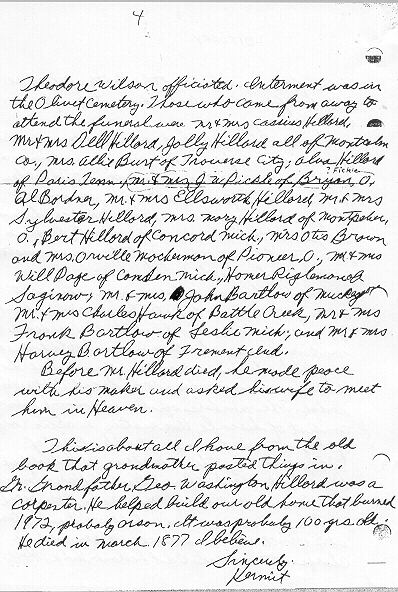 4
Theodore Wilson officiated. Interment was in
the Olivet Cemetery. Those who came from away to
attend the funeral were Mr & Mrs Cassius Hillard,
Mr & Mrs Dell Hillard, Jolly Hillard all of Montcalm
Co., Mrs Allie Burt of Traverse City; Alva Hillard
? Fickle
of Paris Tenn., Mr & Mrs J. W. Pickle of Bryan, O.,
Al Bordner, Mr & Mrs Ellsworth Hillard, Mr & Mrs
Sylvester Hillard, Mrs. Mary Hillard of Montpelier,
O., Bert Hillard of Concord Mich., Mrs Otis Brown
and Mrs. Orville Mocherman of Pioneer, O., Mr & Mrs
Will Page of Camden Mich., Homer of
Saginaw, Mr. & Mrs. John Bartlow of
Mr. & Mrs Charles Hauk of Battle Creek, Mr & Mrs
Frank Bartlow of Leslie Mich; and Mr & Mrs
Harvey Bartlow of Fremont Ind.
Before Mr Hillard died, he made peace
with his maker and asked his wife to meet
him in Heaven.
This is about all I have from the old
book that grandmother posted things in.
Gr. Grandfather, Geo. Washington Hillard was a
carpester. He helped build our old home that burned
1972, probaly arson. It was probaly 100 yrs. old.
He died in March 1877 I believe.
Sincerely,
Kermit